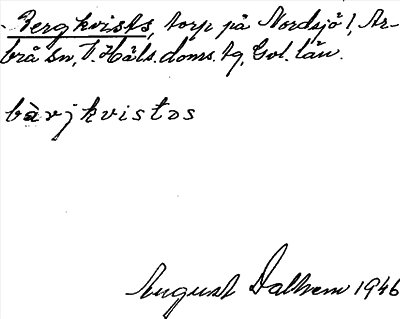 Bergkvists, torp på Nordsjö 1, Ar-
brå sn, V. Häls. doms. tg, Gvl. län.
bàrjkvistəs
August Dalhem 1946